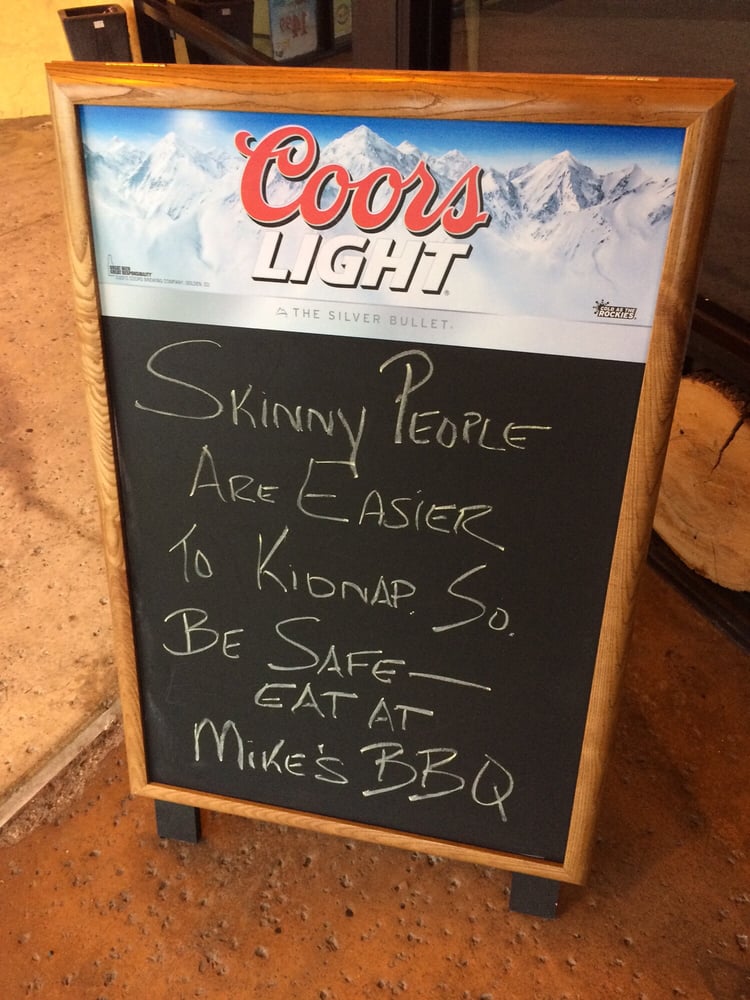 Coors
LIGHT
THE SILVER BULLET.
COLD AS THE
ROCKIES
SKINNY PEOPLE
ARE EASIER
TO KIDNAP. SO,
BE SAFE—
EAT AT
MIKE'S BBQ